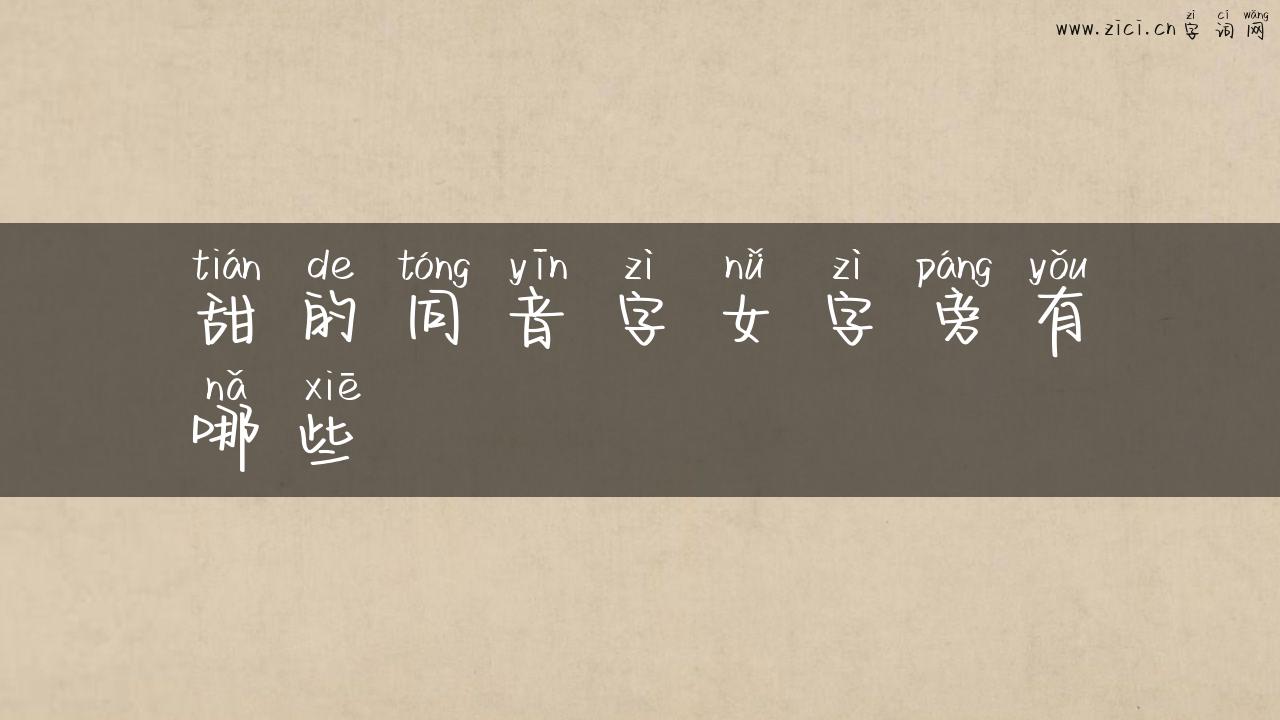 zì cí wǎng
www.zici.cn 字词网
tián de tóng yīn zì nǚ zì páng yǒu
甜的同音字女字旁有
nǎ xiē
哪些